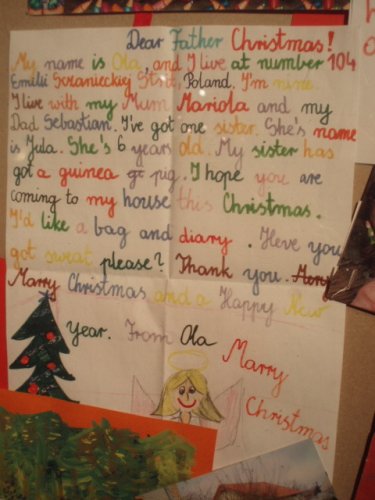 Dear Father Christmas!
My name is Ola, and I live at number 104
Emilii Sczanieckiej Strit, Poland. I'm nine.
I live with my Mum Mariola and my
Dad Sebastian. I've got one sister. She's name
is Jula. She's 6 years old. My sister has
got a guinea pig. I hope you are
coming to my house this Christmas.
I'd like a bag and diary. Heve you
got sweat please? Thank you.
Marry Christmas and a Happy New
Year. From Ola
Marry
Christmas